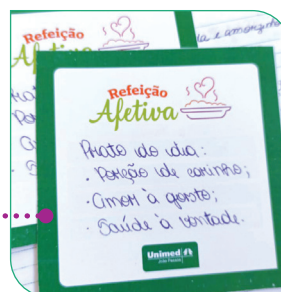 Refeição
Afetiva
Refeição
Afetiva
Prato do dia:
• Porção de carinho;
• Amor à gosto;
• Saúde à vontade.
Unimed
João Pessoa